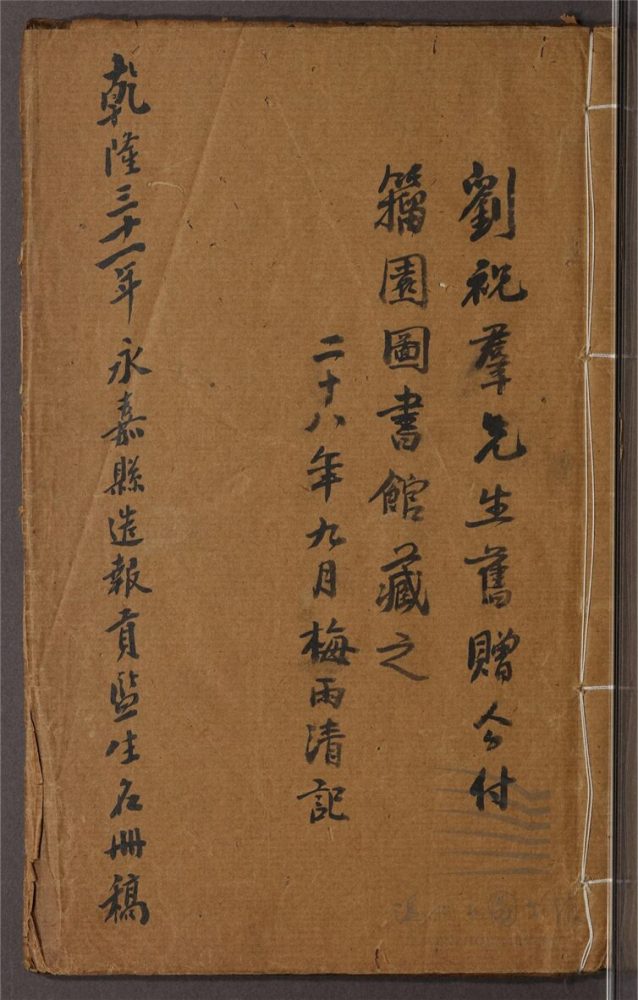 劉祝羣先生舊贈今付
籀園圖書館藏之
二十八年九月梅雨清記
乾隆三十一年永嘉縣造報貢監生名冊稿